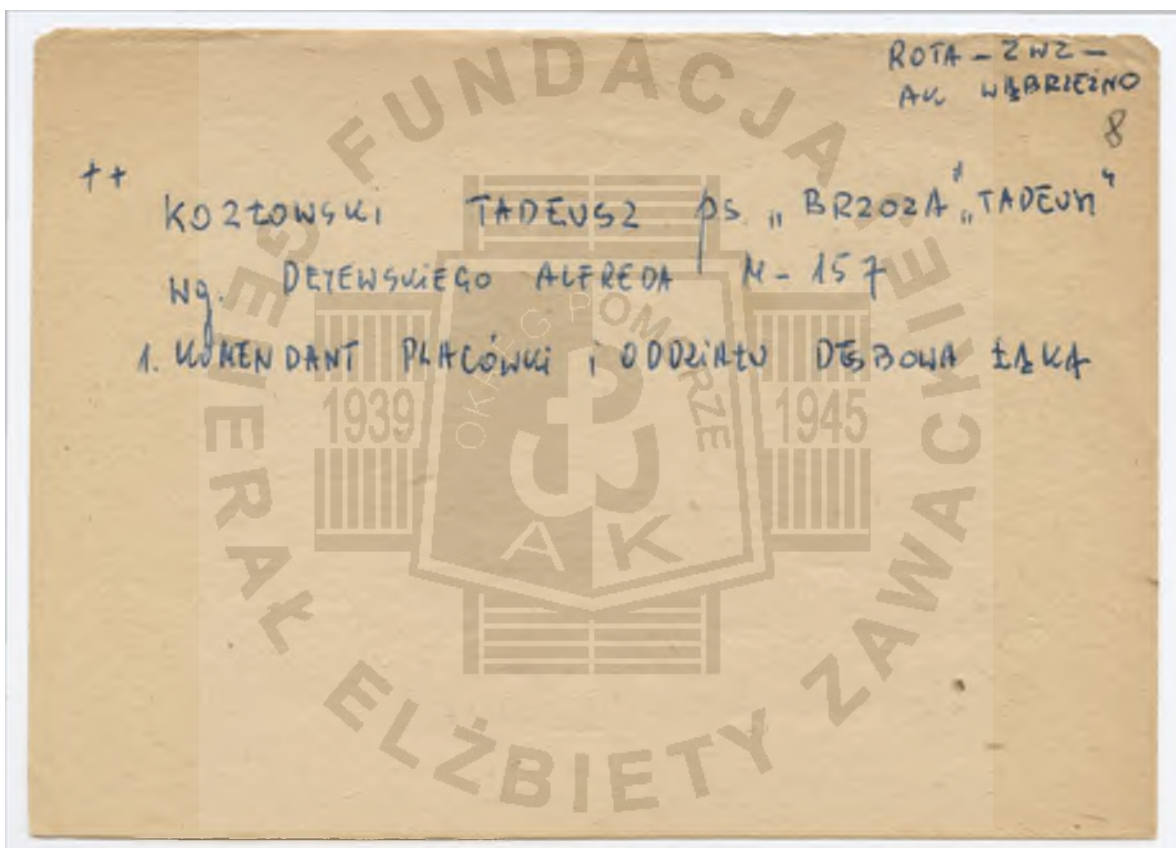 ROTA - ZWZ -
AK WĄBRZEŹNO
8
++
KOZŁOWSKI TADEUSZ ps. „BRZOZA" „TADEUSZ"
wg. ALFREDA M-157
1. KOMENDANT PLACÓWKI i ODDZIAŁU DĘBOWA ŁĄKA
FUNDACJA
GENERAŁ ELŻBIETY ZAWACKIEJ
OKRĘG POMORZE
1939 1945
AK